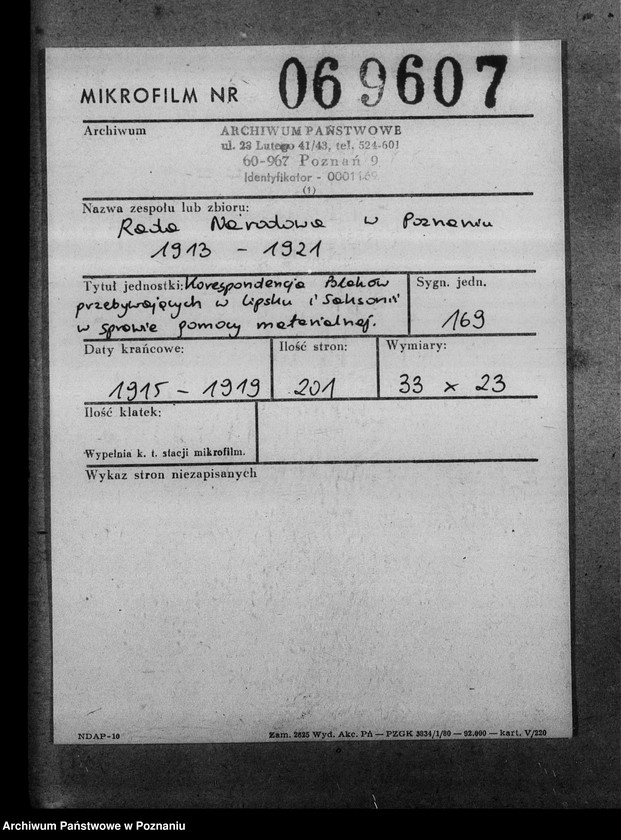 MIKROFILM NR 069607
Archiwum
ARCHIWUM PAŃSTWOWE
ul. 23 Lutego 41/43, tel. 524-601
60-967 Poznań 9
Identyfikator - 0001
(1)
Nazwa zespołu lub zbioru:
Rada Narodowa w Poznaniu
1913 - 1921
Tytuł jednostki: Korespondencja Polaków
przebywających w Lipsku i Saksonii
w sprawie pomocy materialnej.
Sygn. jedn.
169
Daty krańcowe:
1915 - 1919
Ilość stron:
201
Wymiary:
33 x 23
Ilość klatek:
Wypełnia k. t. stacji mikrofilm.
Wykaz stron niezapisanych
NDAP-10
Zam. 2625 Wyd. Akc. Pń — PZGK 3834/1/80 — 92.000 — kart. V/220
Archiwum Państwowe w Poznaniu